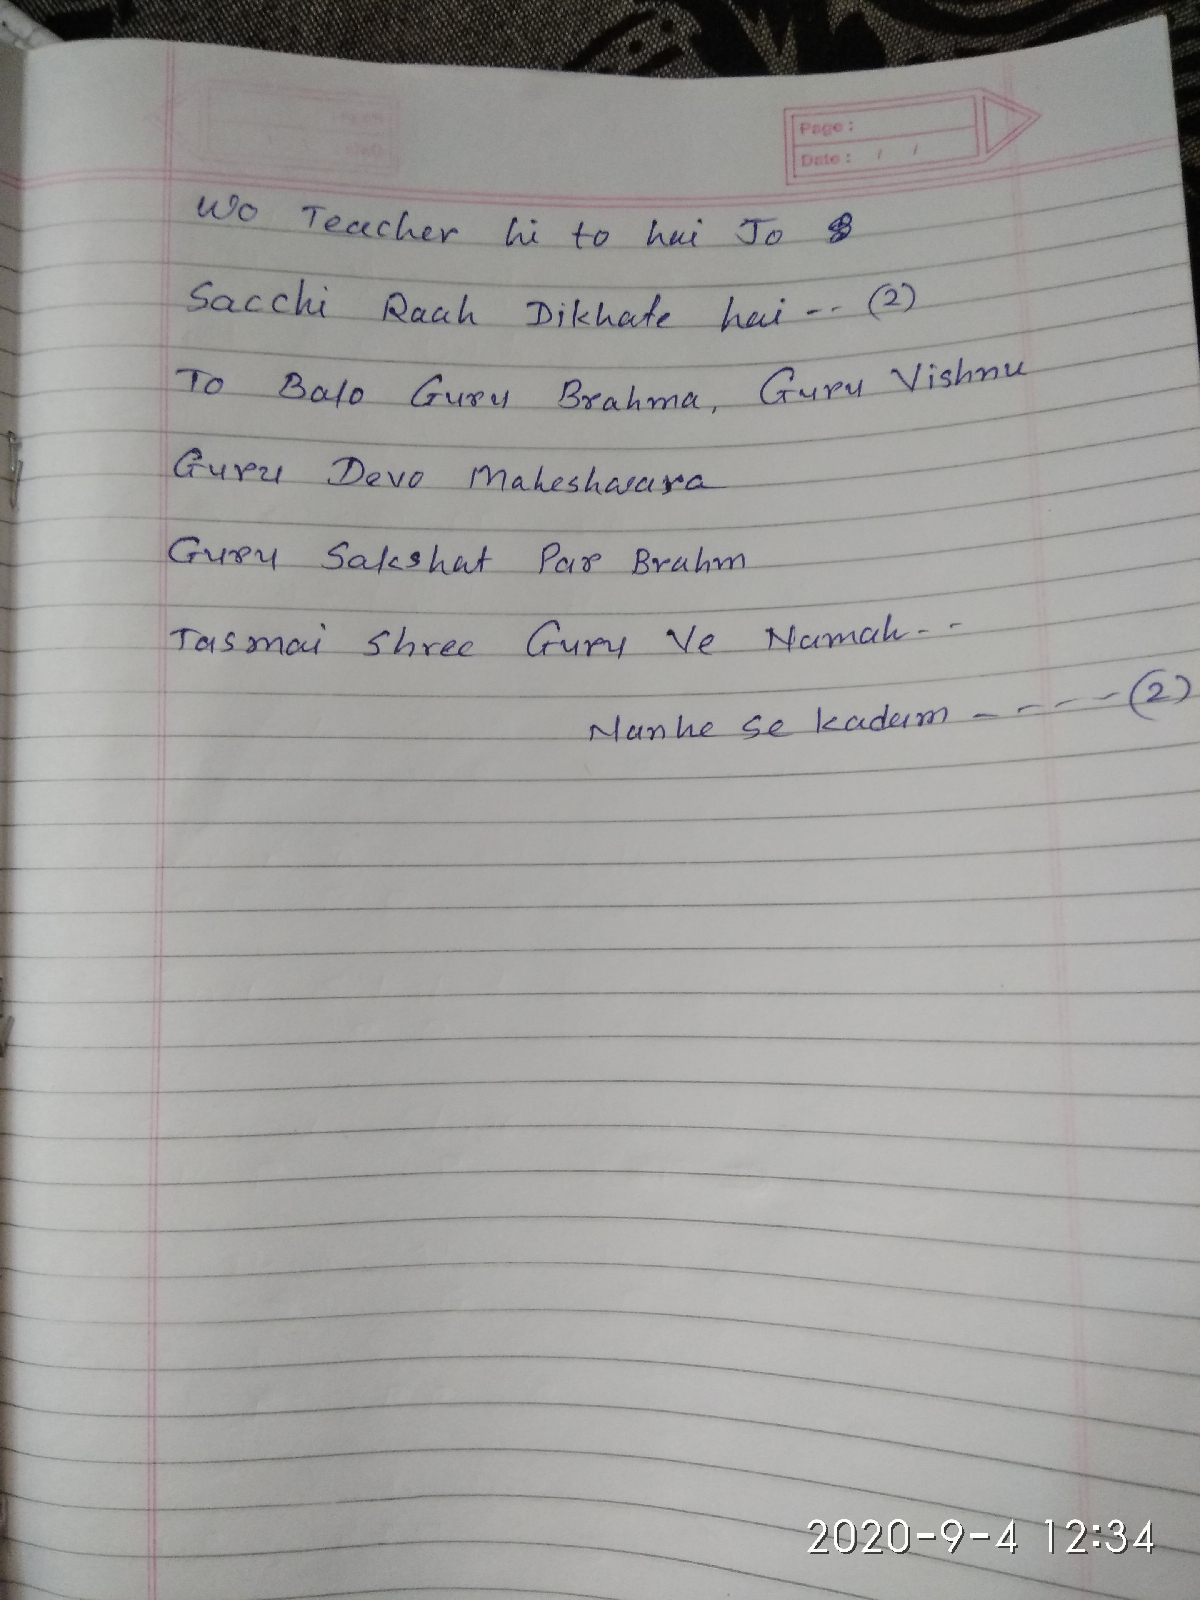 Page :
Date : / /
Wo Teacher hi to hai Jo
Sacchi Raah Dikhate hai -- (2)
To Balo Guru Brahma, Guru Vishnu
Guru Devo Maheshwara
Guru Sakshat Par Brahm
Tasmai Shree Guru Ve Namah--
Nanhe se kadam ----- (2)
2020-9-4 12:34